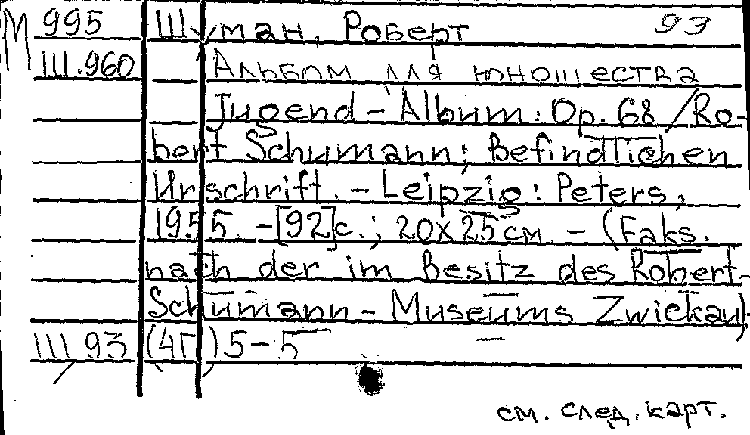 М 995 Шуман, Роберт 93
III.960 Альбом для юношества
Jugend-Album: Op. 68 / Ro-
bert Schumann; Befindlichen
Urschrift. - Leipzig: Peters,
1955. - [92] с.; 20x25 см. - (Faks.
nach der im Besitz des Robert-
Schumann-Museums Zwickau)
III 93 (4Г) 5-5
см. след. карт.